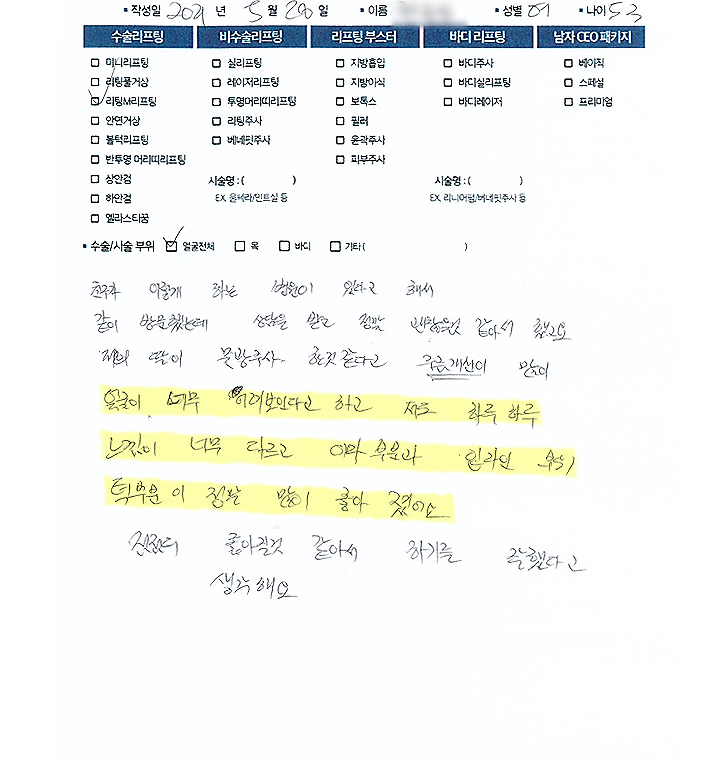 ▪ 작성일 2021 년 5 월 20 일 ▪ 이름 ▪ 성별 여 ▪ 나이 53
수술리프팅 비수술리프팅 리프팅 부스터 바디 리프팅 남자 CEO 패키지
□ 미니리프팅 □ 실리프팅 □ 지방흡입 □ 바디주사 □ 베이직
□ 리팅풀거상 □ 레이저리프팅 □ 지방이식 □ 바디실리프팅 □ 스페셜
☑ 리팅M리프팅 □ 투명머리띠리프팅 □ 보톡스 □ 바디레이저 □ 프리미엄
□ 안면거상 □ 리팅주사 □ 필러
□ 볼턱리프팅 □ 베네핏주사 □ 윤곽주사
□ 반투명 머리띠리프팅 □ 피부주사
□ 상안검 시술명 : ( ) 시술명 : ( )
□ 하안검 EX. 울쎄라/민트실 등 EX. 리니어펌/베네핏주사 등
□ 엘라스티꿈
▪ 수술/시술 부위 ☑ 얼굴전체 □ 목 □ 바디 □ 기타 ( )
친구가 이렇게 하는 병원이 있다고 해서
같이 방문했는데 상담을 받고 정말 괜찮을것 같아서 했고요
저의 딸이 물방주사 한것 같다고 주름개선이 많이
얼굴이 너무 어려보인다고 하고 저도 하루 하루
느낌이 너무 다르고 이마 부분과 입라인 부위
턱부분이 정말 많이 좋아 졌어요
점점더 좋아질것 같아서 하기를 잘했다고
생각해요